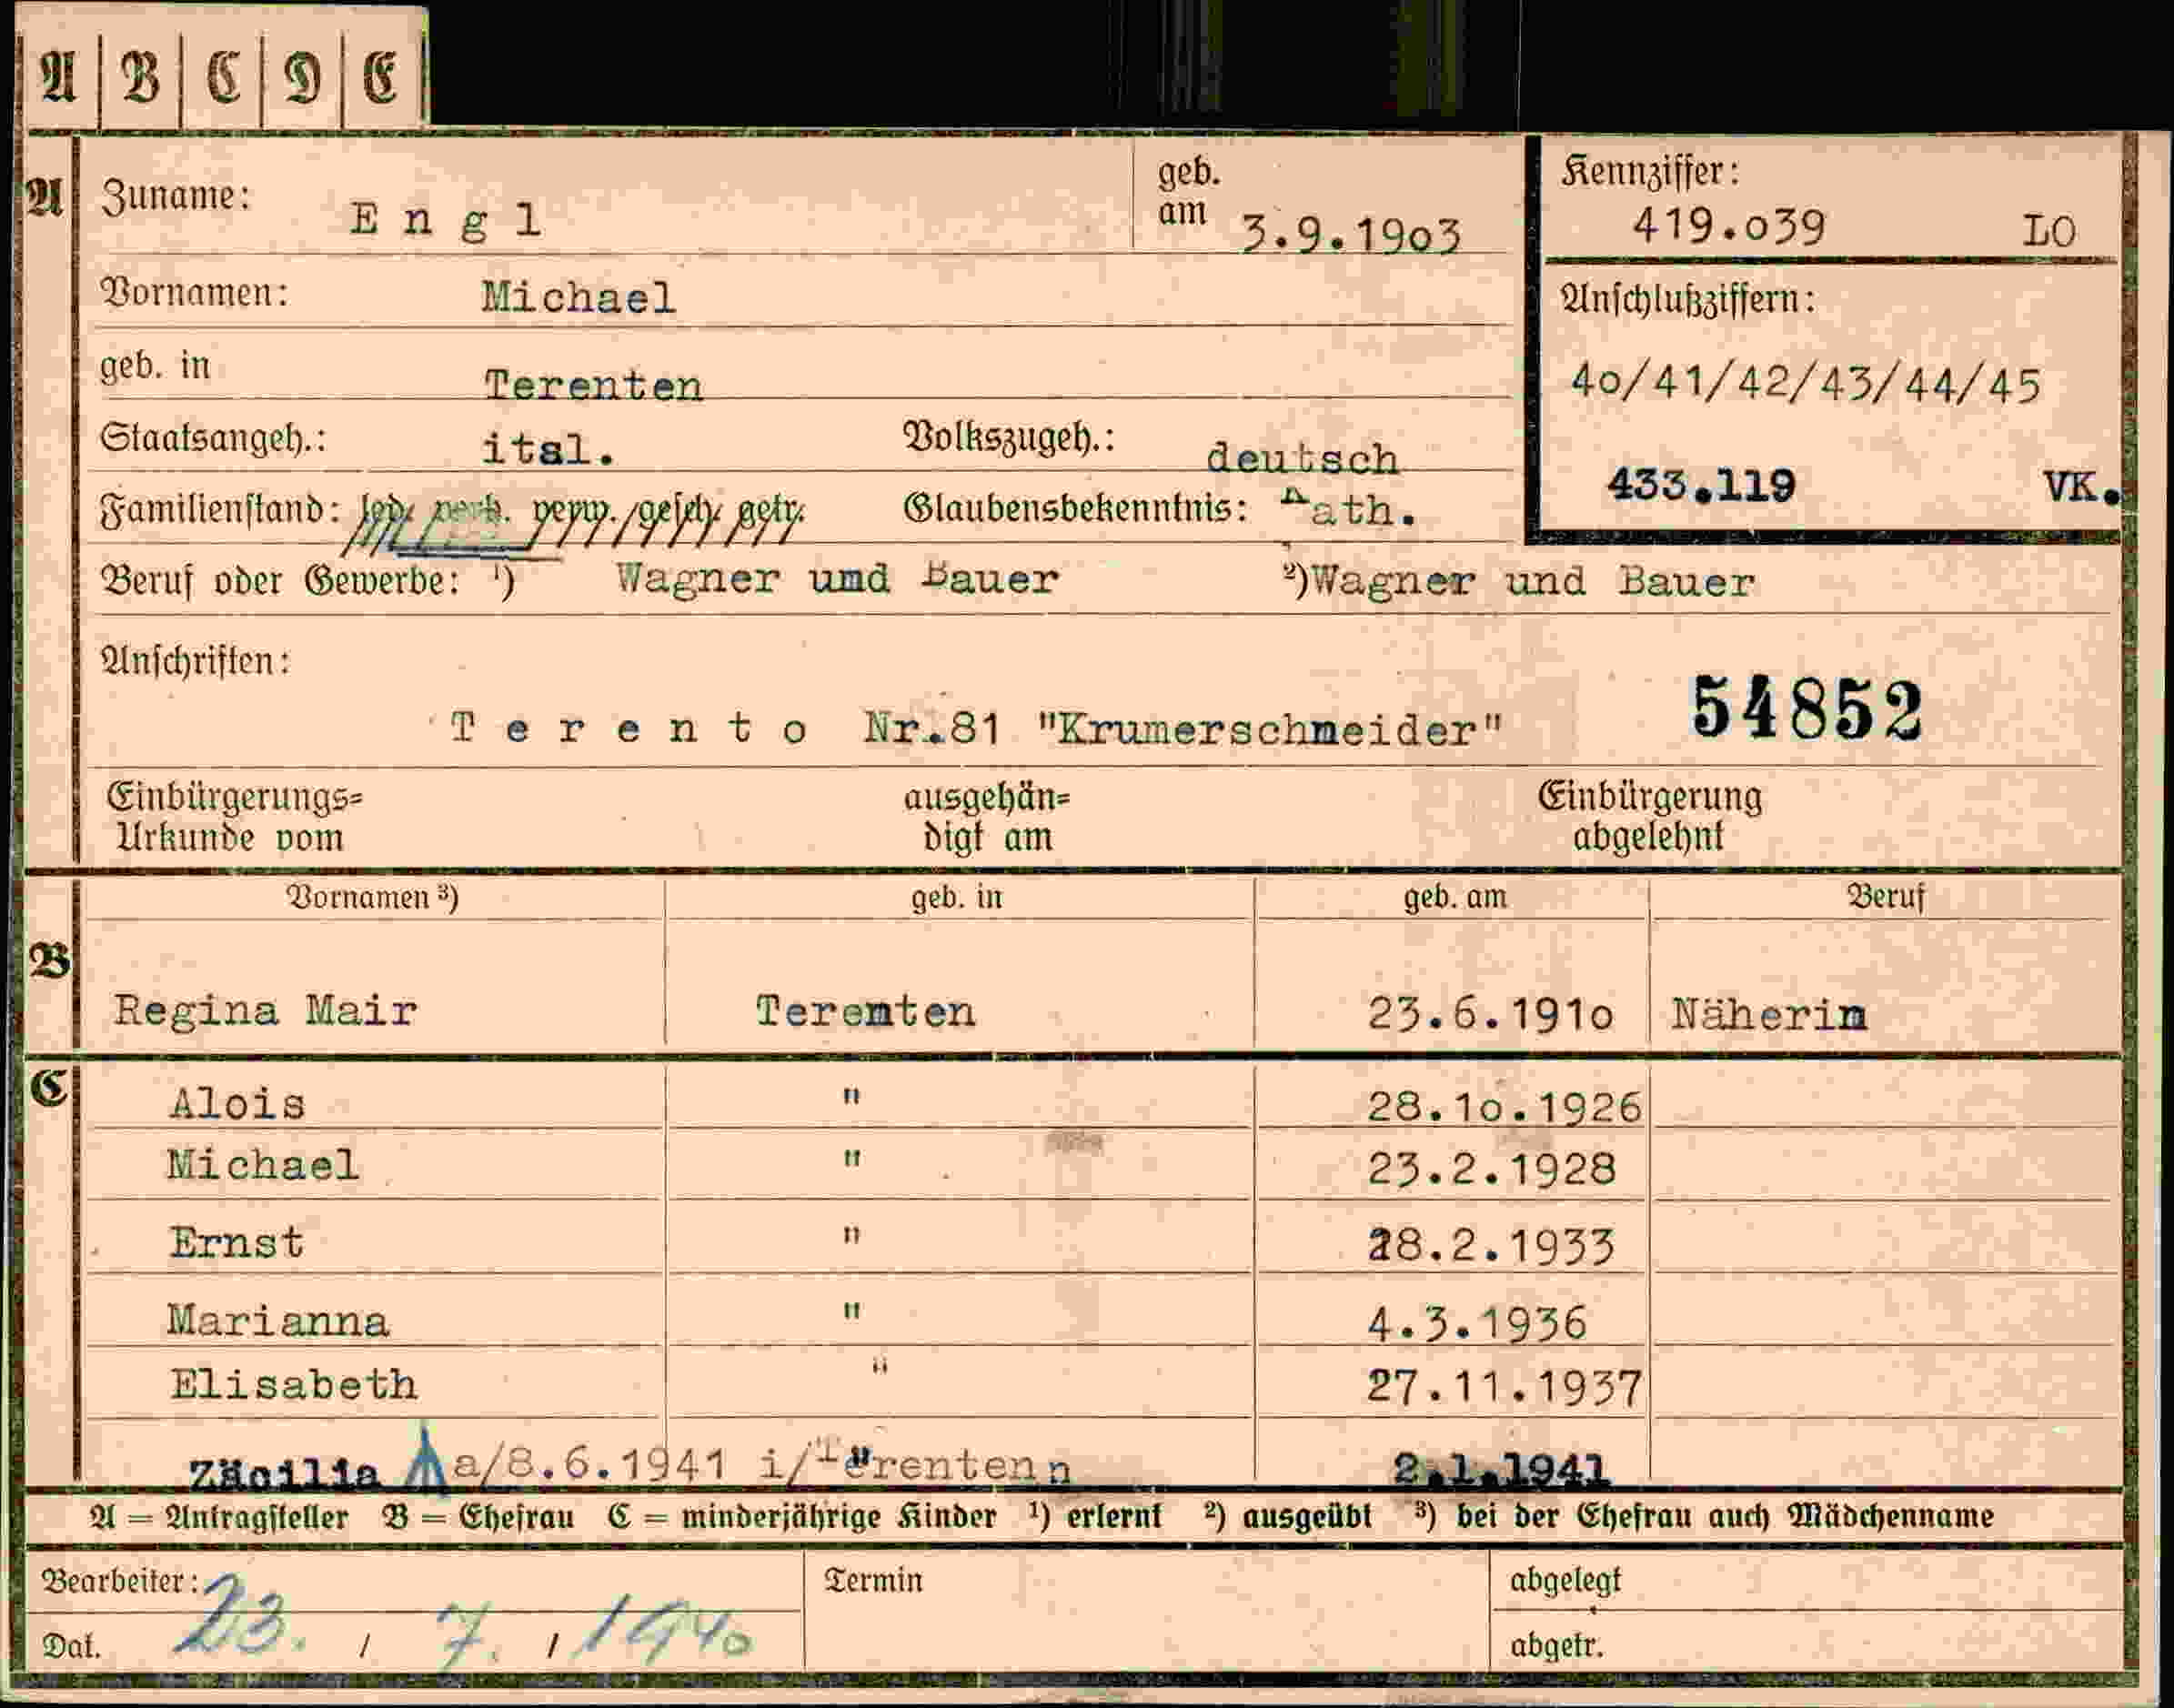 A B C D E
A Zuname: Engl geb. am 3.9.1903 Kennziffer: 419.039 LO
Vornamen: Michael Anschlußziffern:
geb. in Terenten 40/41/42/43/44/45
Staatsangeh.: ital. Volkszugeh.: deutsch 433.119 VK.
Familienstand: led. verh. verw. gesch. getr. Glaubensbekenntnis: kath.
Beruf oder Gewerbe: ¹) Wagner und Bauer ²) Wagner und Bauer
Anschriften:
Terento Nr.81 "Krumerschneider" 54852
Einbürgerungs= Urkunde vom ausgehän= digt am Einbürgerung abgelehnt
Vornamen ³) geb. in geb. am Beruf
B Regina Mair Terenten 23.6.1910 Näherin
C Alois " 28.10.1926
Michael " 23.2.1928
Ernst " 28.2.1933
Marianna " 4.3.1936
Elisabeth " 27.11.1937
Zäcilia a/8.6.1941 i/Terenten " 2.1.1941
A = Antragsteller B = Ehefrau C = minderjährige Kinder ¹) erlernt ²) ausgeübt ³) bei der Ehefrau auch Mädchenname
Bearbeiter: Termin abgelegt
Dat. 23. / 7. / 1940 abgetr.